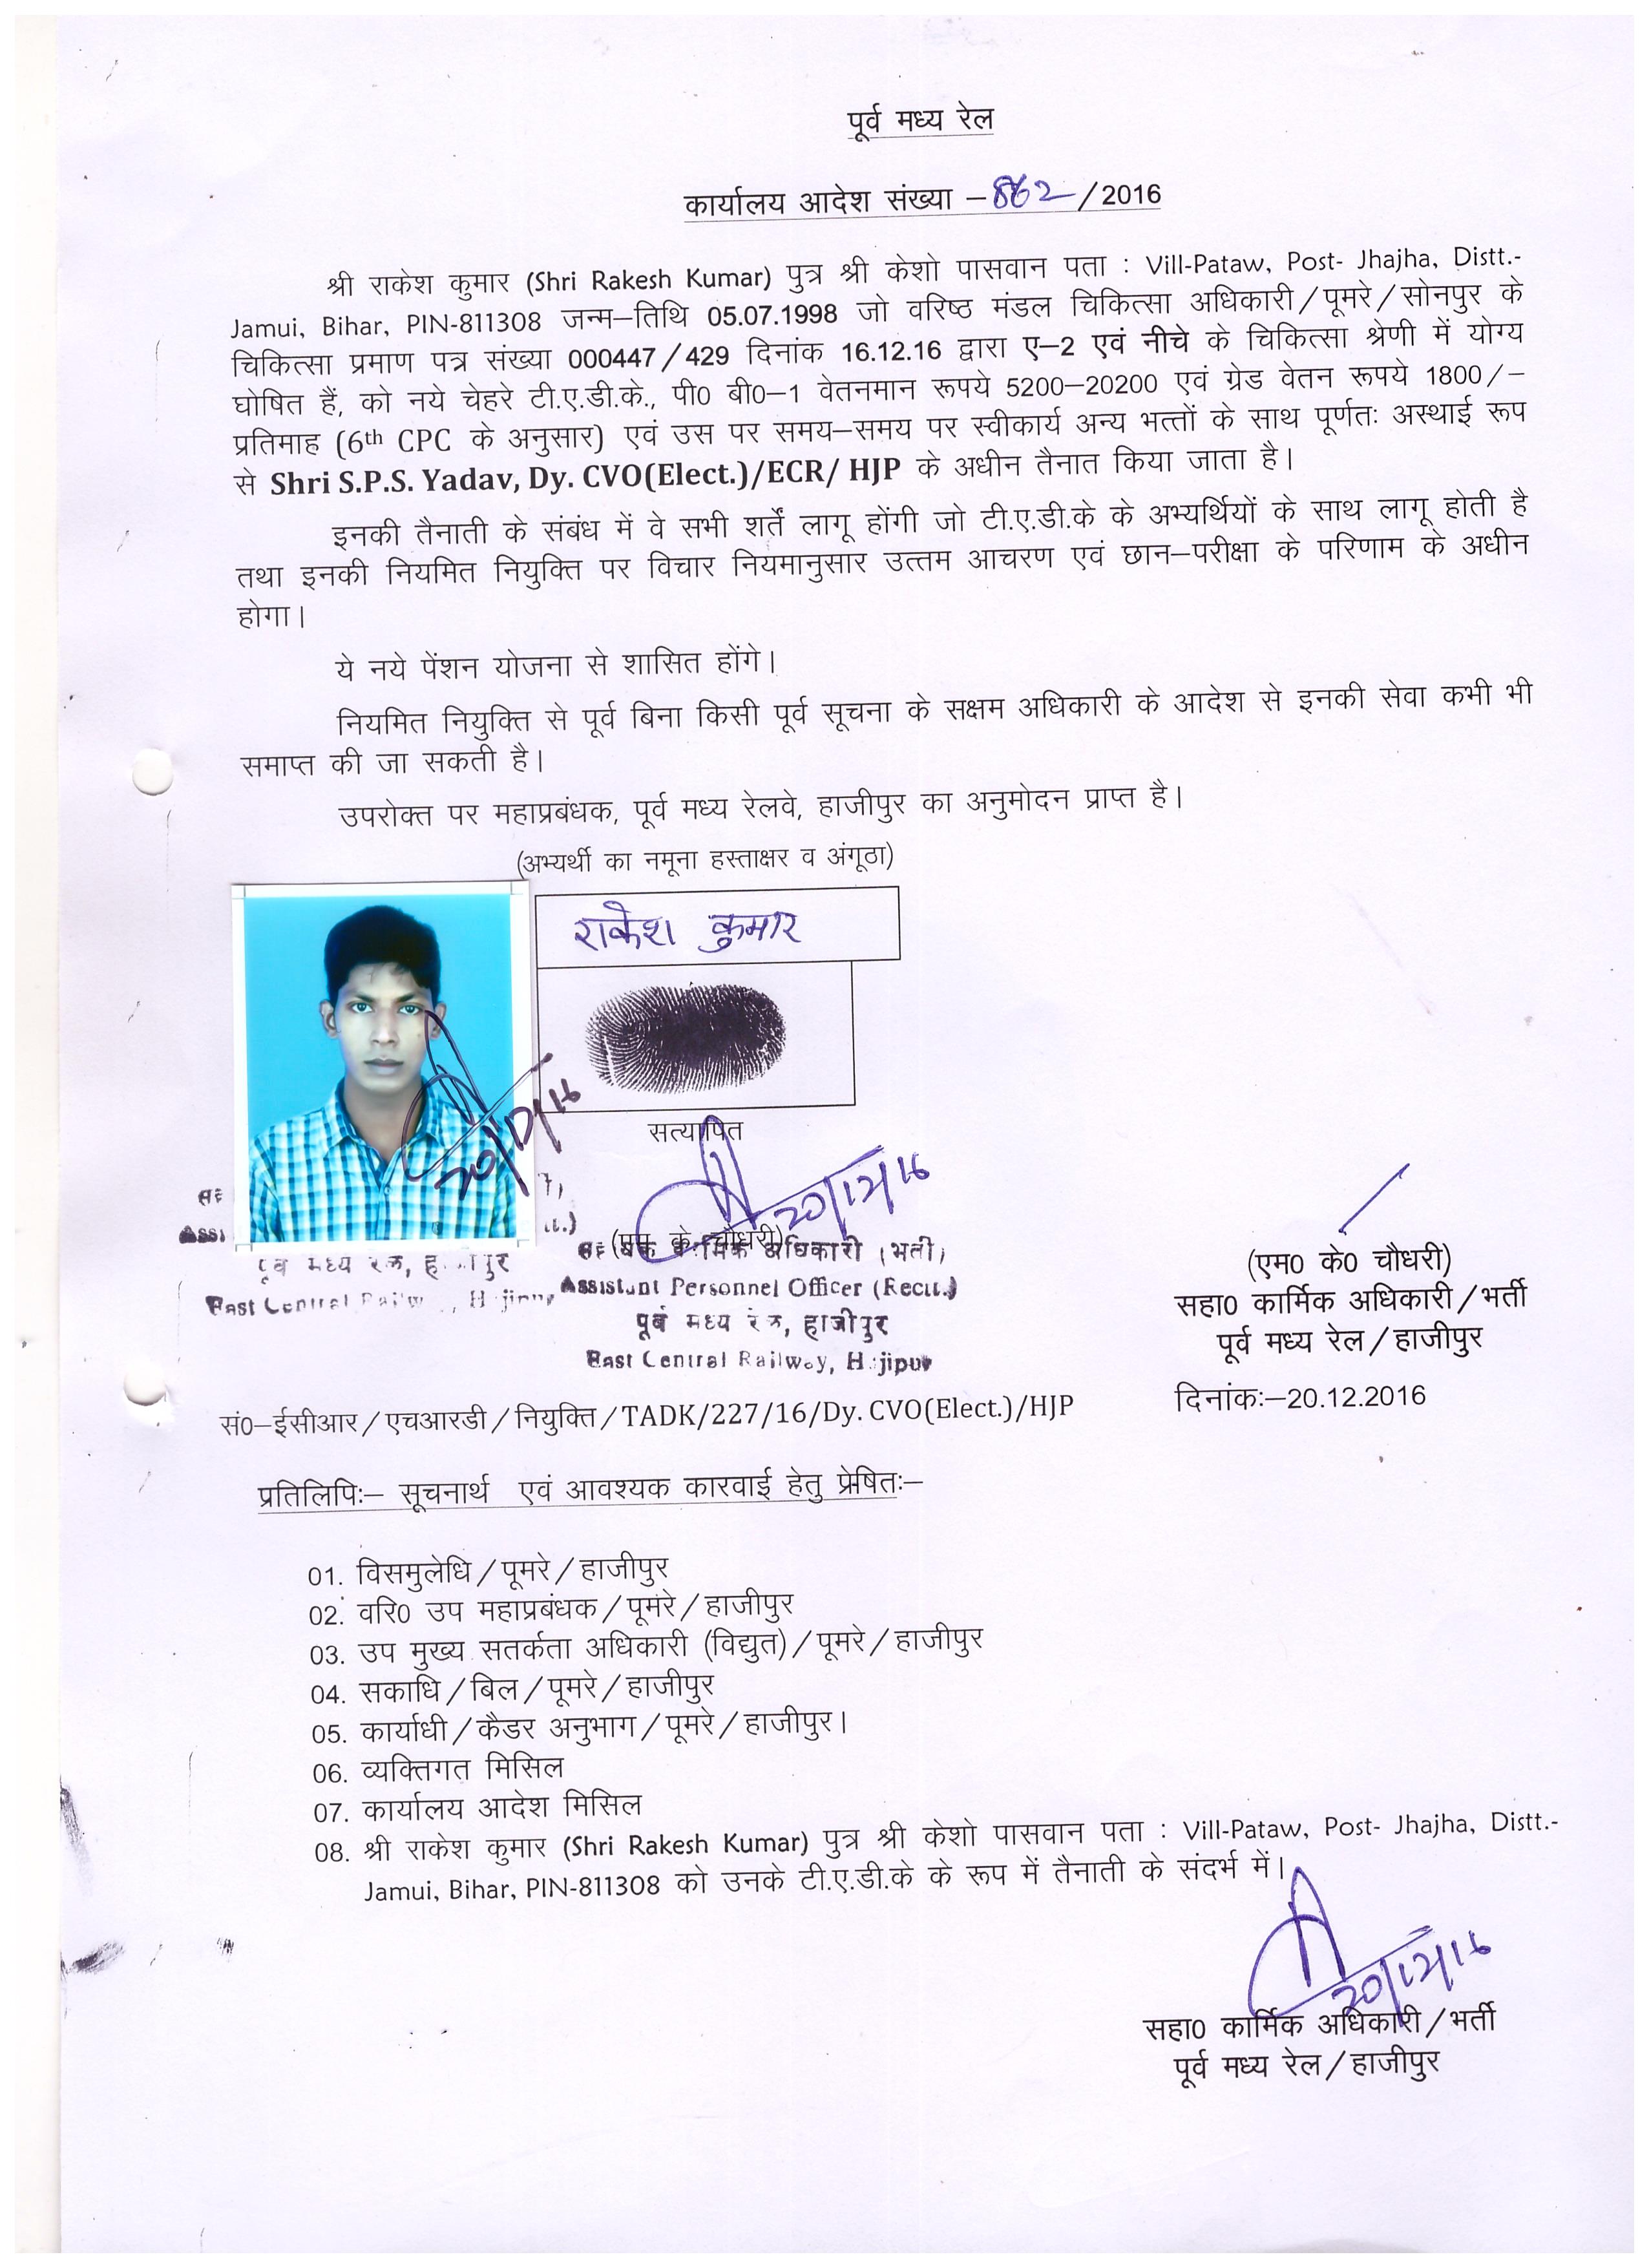 पूर्व मध्य रेल
कार्यालय आदेश संख्या –862/2016
श्री राकेश कुमार (Shri Rakesh Kumar) पुत्र श्री केशो पासवान पता : Vill-Pataw, Post- Jhajha, Distt.-
Jamui, Bihar, PIN-811308 जन्म–तिथि 05.07.1998 जो वरिष्ठ मंडल चिकित्सा अधिकारी/पूमरे/सोनपुर के
चिकित्सा प्रमाण पत्र संख्या 000447/429 दिनांक 16.12.16 द्वारा ए–2 एवं नीचे के चिकित्सा श्रेणी में योग्य
घोषित हैं, को नये चेहरे टी.ए.डी.के., पी0 बी0–1 वेतनमान रूपये 5200–20200 एवं ग्रेड वेतन रूपये 1800/–
प्रतिमाह (6th CPC के अनुसार) एवं उस पर समय–समय पर स्वीकार्य अन्य भत्तों के साथ पूर्णतः अस्थाई रूप
से Shri S.P.S. Yadav, Dy. CVO(Elect.)/ECR/ HJP के अधीन तैनात किया जाता है।
इनकी तैनाती के संबंध में वे सभी शर्तें लागू होंगी जो टी.ए.डी.के के अभ्यर्थियों के साथ लागू होती है
तथा इनकी नियमित नियुक्ति पर विचार नियमानुसार उत्तम आचरण एवं छान–परीक्षा के परिणाम के अधीन
होगा।
ये नये पेंशन योजना से शासित होंगे।
नियमित नियुक्ति से पूर्व बिना किसी पूर्व सूचना के सक्षम अधिकारी के आदेश से इनकी सेवा कभी भी
समाप्त की जा सकती है।
उपरोक्त पर महाप्रबंधक, पूर्व मध्य रेलवे, हाजीपुर का अनुमोदन प्राप्त है।
(अभ्यर्थी का नमूना हस्ताक्षर व अंगूठा)
राकेश कुमार
20/12/16
सत्यापित
20/12/16
(एम. के. चौधरी)
सहायक कार्मिक अधिकारी (भर्ती)
Assistant Personnel Officer (Rectt.)
पूर्व मध्य रेल, हाजीपुर
East Central Railway, Hajipur
पूर्व मध्य रेल, हाजीपुर
East Central Railway, Hajipur
(एम0 के0 चौधरी)
सहा0 कार्मिक अधिकारी/भर्ती
पूर्व मध्य रेल/हाजीपुर
सं0–ईसीआर/एचआरडी/नियुक्ति/TADK/227/16/Dy. CVO(Elect.)/HJP
दिनांकः–20.12.2016
प्रतिलिपिः– सूचनार्थ एवं आवश्यक कारवाई हेतु प्रेषितः–
01. विसमुलेधि/पूमरे/हाजीपुर
02. वरि0 उप महाप्रबंधक/पूमरे/हाजीपुर
03. उप मुख्य सतर्कता अधिकारी (विद्युत)/पूमरे/हाजीपुर
04. सकाधि/बिल/पूमरे/हाजीपुर
05. कार्याधी/कैडर अनुभाग/पूमरे/हाजीपुर।
06. व्यक्तिगत मिसिल
07. कार्यालय आदेश मिसिल
08. श्री राकेश कुमार (Shri Rakesh Kumar) पुत्र श्री केशो पासवान पता : Vill-Pataw, Post- Jhajha, Distt.-
Jamui, Bihar, PIN-811308 को उनके टी.ए.डी.के के रूप में तैनाती के संदर्भ में।
20/12/16
सहा0 कार्मिक अधिकारी/भर्ती
पूर्व मध्य रेल/हाजीपुर